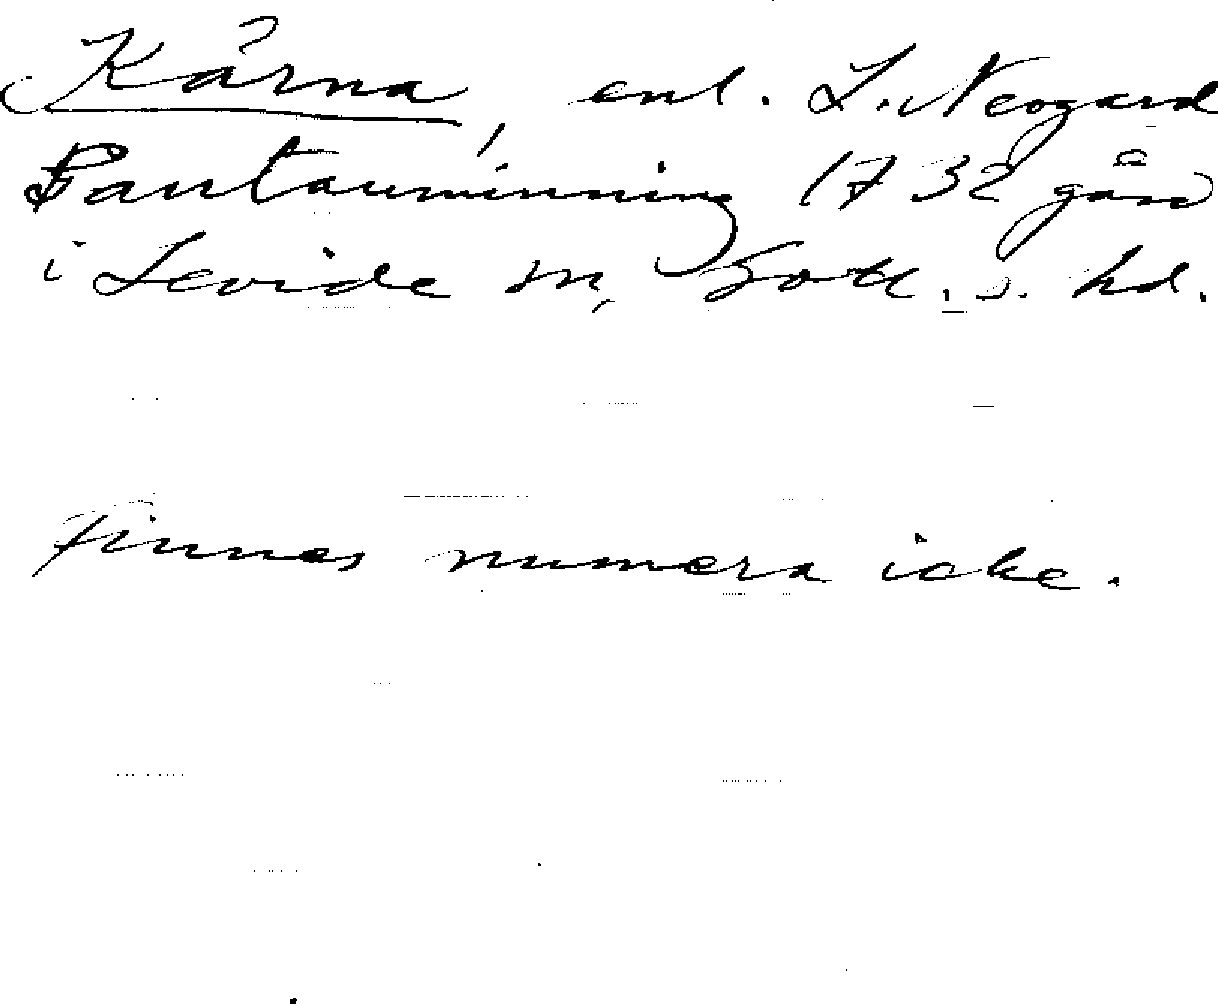 Kårna, enl. L. Neogard
Gautauminning 1732 gård
i Levide sn, Gotl. s. hd.
Finnes numera icke.